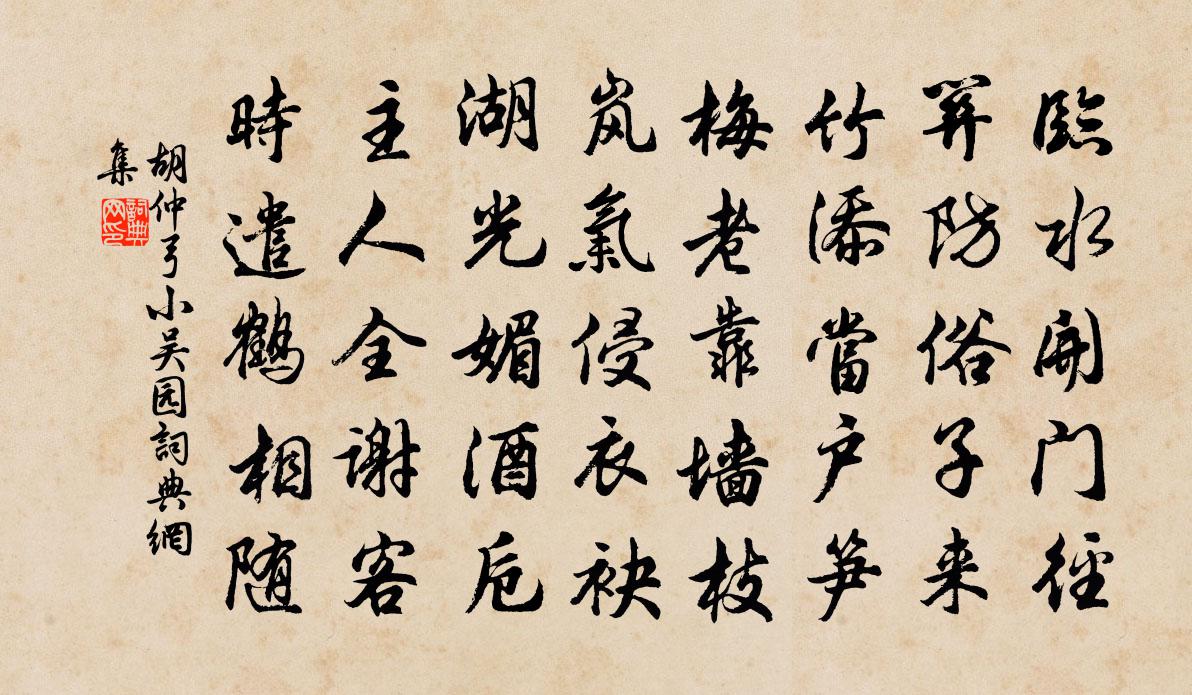 臨水開门徑
防俗子来
竹添當户笋
梅老靠墙枝
岚氣侵衣袂
湖光媚酒卮
主人全谢客
時遣鶴相随
胡仲弓小吴园詞典網
集
詞典网印